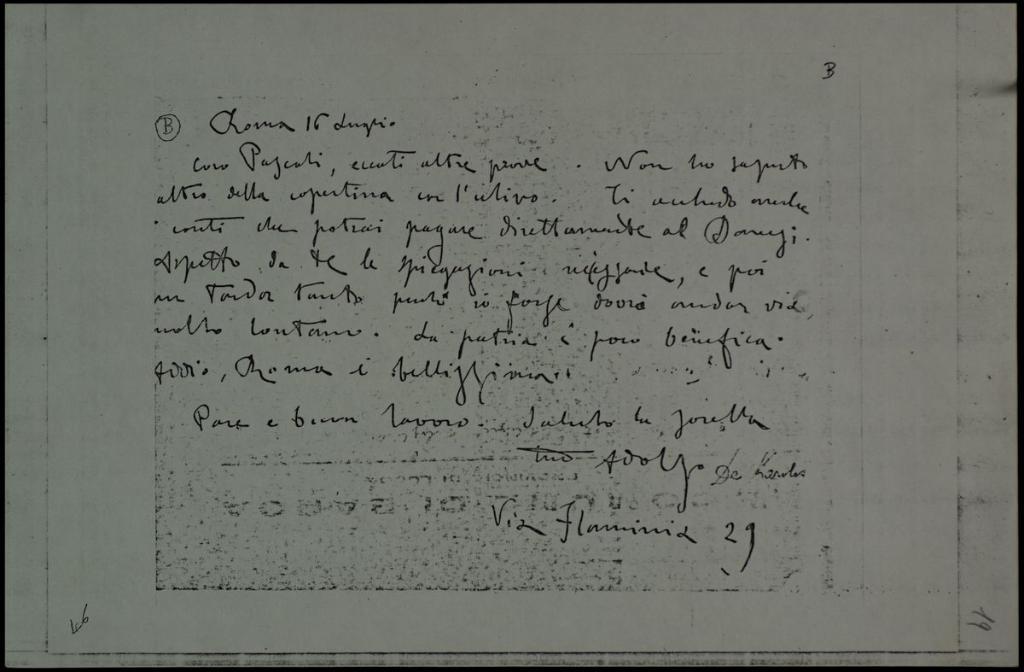 B
B Roma 16 Luglio
Caro Pascoli, eccoti altre prove. Non ho saputo
altro della copertina con l'ulivo. Ti accludo anche
i conti che potrai pagare direttamente al Danesi.
Aspetto da te le spiegazioni necessarie, e poi
non tardar tanto perché io forse dovrò andar via,
molto lontano. La patria è poco benefica.
Addio, Roma è bellissima.
Pace e buon lavoro. Saluto la sorella
Tuo Adolfo De Karolis
Via Flaminia 29
46
19